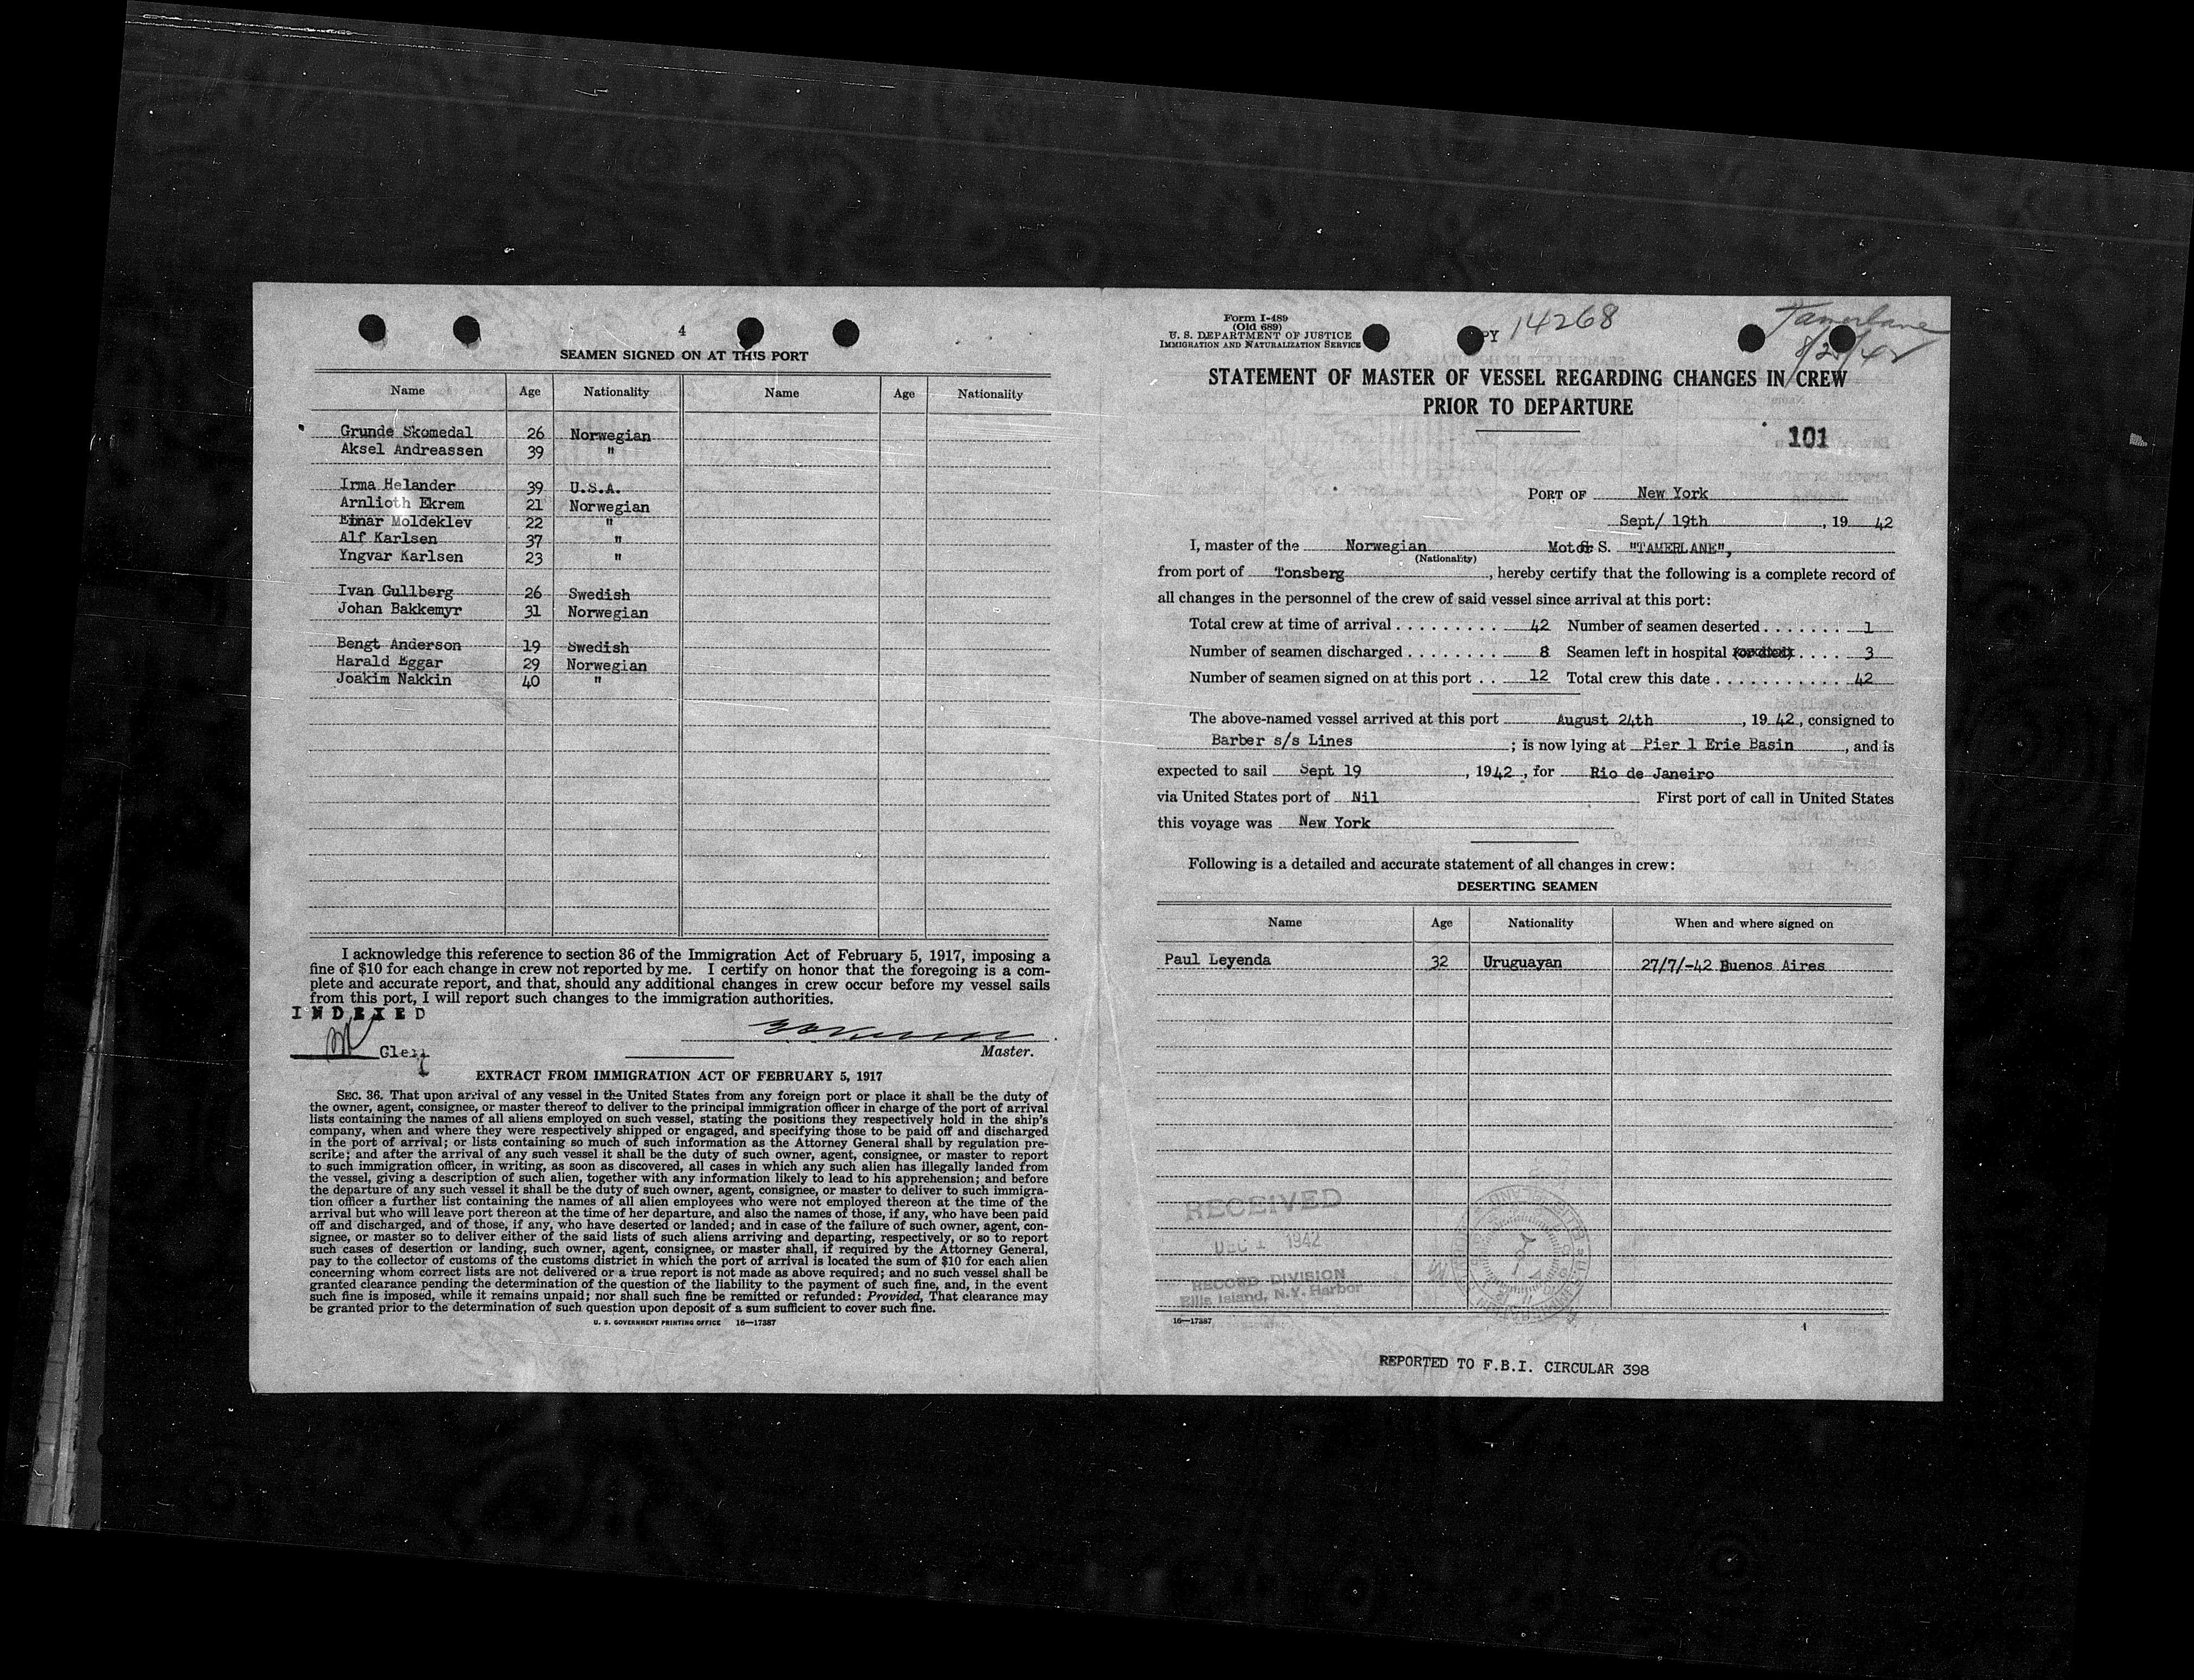 4
SEAMEN SIGNED ON AT THIS PORT
Name Age Nationality Name Age Nationality
Grunde Skomedal 26 Norwegian
Aksel Andreassen 39 "
Irma Helander 39 U.S.A.
Arnlioth Ekrem 21 Norwegian
Einar Moldeklev 22 "
Alf Karlsen 37 "
Yngvar Karlsen 23 "
Ivan Gullberg 26 Swedish
Johan Bakkemyr 31 Norwegian
Bengt Anderson 19 Swedish
Harald Eggar 29 Norwegian
Joakim Nakkin 40 "
I acknowledge this reference to section 36 of the Immigration Act of February 5, 1917, imposing a
fine of $10 for each change in crew not reported by me. I certify on honor that the foregoing is a com-
plete and accurate report, and that, should any additional changes in crew occur before my vessel sails
from this port, I will report such changes to the immigration authorities.
INDEXED
Clerk
Master.
EXTRACT FROM IMMIGRATION ACT OF FEBRUARY 5, 1917
SEC. 36. That upon arrival of any vessel in the United States from any foreign port or place it shall be the duty of
the owner, agent, consignee, or master thereof to deliver to the principal immigration officer in charge of the port of arrival
lists containing the names of all aliens employed on such vessel, stating the positions they respectively hold in the ship's
company, when and where they were respectively shipped or engaged, and specifying those to be paid off and discharged
in the port of arrival; or lists containing so much of such information as the Attorney General shall by regulation pre-
scribe; and after the arrival of any such vessel it shall be the duty of such owner, agent, consignee, or master to report
to such immigration officer, in writing, as soon as discovered, all cases in which any such alien has illegally landed from
the vessel, giving a description of such alien, together with any information likely to lead to his apprehension; and before
the departure of any such vessel it shall be the duty of such owner, agent, consignee, or master to deliver to such immigra-
tion officer a further list containing the names of all alien employees who were not employed thereon at the time of the
arrival but who will leave port thereon at the time of her departure, and also the names of those, if any, who have been paid
off and discharged, and of those, if any, who have deserted or landed; and in case of the failure of such owner, agent, con-
signee, or master so to deliver either of the said lists of such aliens arriving and departing, respectively, or so to report
such cases of desertion or landing, such owner, agent, consignee, or master shall, if required by the Attorney General,
pay to the collector of customs of the customs district in which the port of arrival is located the sum of $10 for each alien
concerning whom correct lists are not delivered or a true report is not made as above required; and no such vessel shall be
granted clearance pending the determination of the question of the liability to the payment of such fine, and, in the event
such fine is imposed, while it remains unpaid; nor shall such fine be remitted or refunded: Provided, That clearance may
be granted prior to the determination of such question upon deposit of a sum sufficient to cover such fine.
U. S. GOVERNMENT PRINTING OFFICE 16—17387
Form I-489
(Old 689)
U. S. DEPARTMENT OF JUSTICE
IMMIGRATION AND NATURALIZATION SERVICE
PY 14268
Tamerlane
STATEMENT OF MASTER OF VESSEL REGARDING CHANGES IN CREW
PRIOR TO DEPARTURE
101
PORT OF New York
Sept/ 19th, 1942
I, master of the Norwegian Motor S. "TAMERLANE",
(Nationality)
from port of Tonsberg, hereby certify that the following is a complete record of
all changes in the personnel of the crew of said vessel since arrival at this port:
Total crew at time of arrival . . . . . . . . . 42 Number of seamen deserted . . . . . . . 1
Number of seamen discharged . . . . . . . . 8 Seamen left in hospital (or died) . . . . 3
Number of seamen signed on at this port . . 12 Total crew this date . . . . . . . . . . . . 42
The above-named vessel arrived at this port August 24th, 1942, consigned to
Barber s/s Lines; is now lying at Pier 1 Erie Basin, and is
expected to sail Sept 19, 1942, for Rio de Janeiro
via United States port of Nil First port of call in United States
this voyage was New York
Following is a detailed and accurate statement of all changes in crew:
DESERTING SEAMEN
Name Age Nationality When and where signed on
Paul Leyenda 32 Uruguayan 27/7/-42 Buenos Aires
RECEIVED
DEC 1 1942
RECORD DIVISION
Ellis Island, N.Y. Harbor
16—17387
REPORTED TO F.B.I. CIRCULAR 398